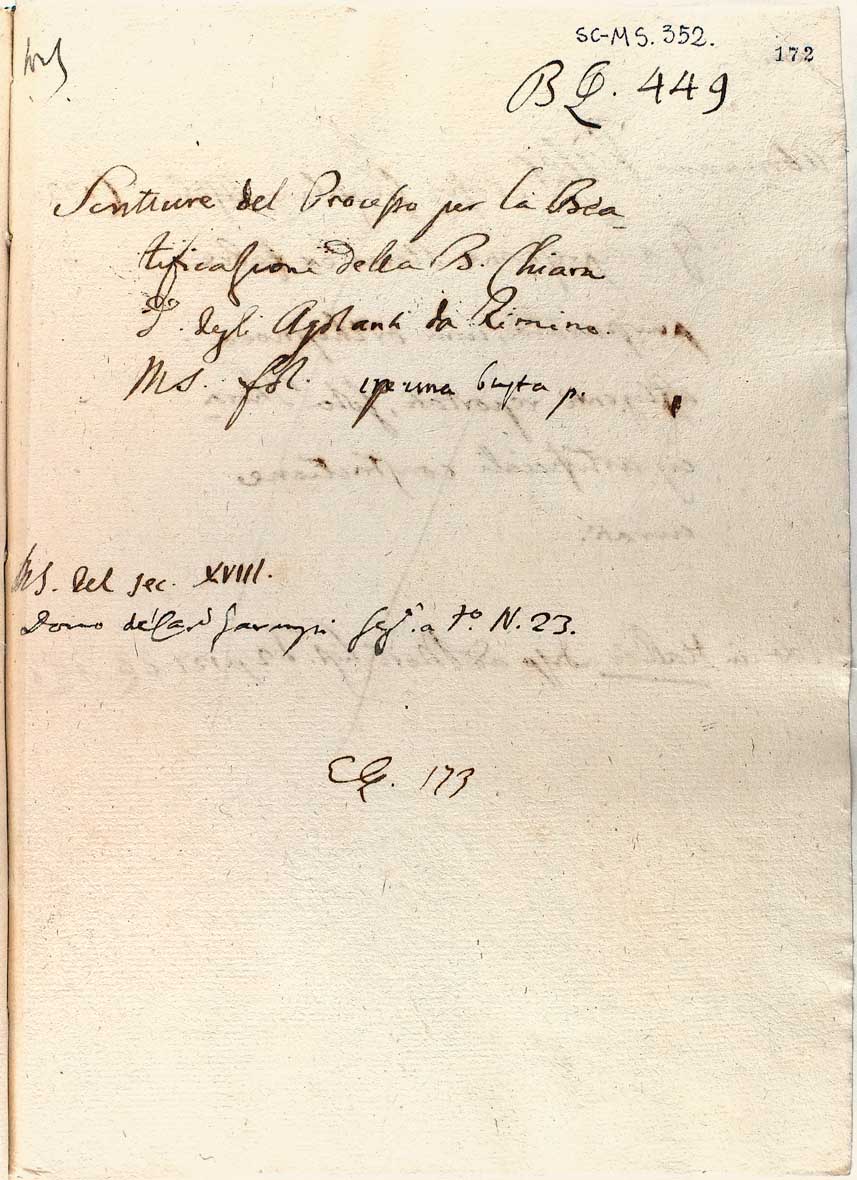 SC-MS. 352.
172
B Q. 449
Scritture del Processo per la Bea
tificazione della B. Chiara
degli Agolanti da Rimino.
MS. fol. in una busta p.
MS. del sec. XVIII.
Dono del Car. Garampi Seg. a to. N. 23.
173